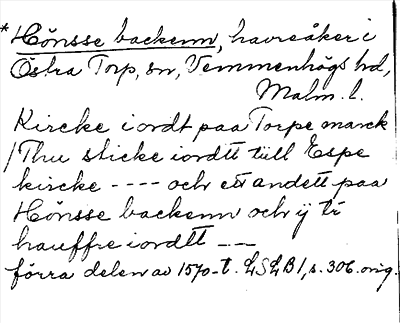 *Hönsse backenn, havreåker i
Östra Torp, sn, Vemmenhögs hd,
Malm. l.
Kircke iordt paa Torpe marck
/Thu sticke iordtt till Espe
kircke ---- och ett andett paa
Hönsse backenn och ij ti
hauffre iordtt --
förra delen av 1570-t. LSLB1, s. 306. orig.